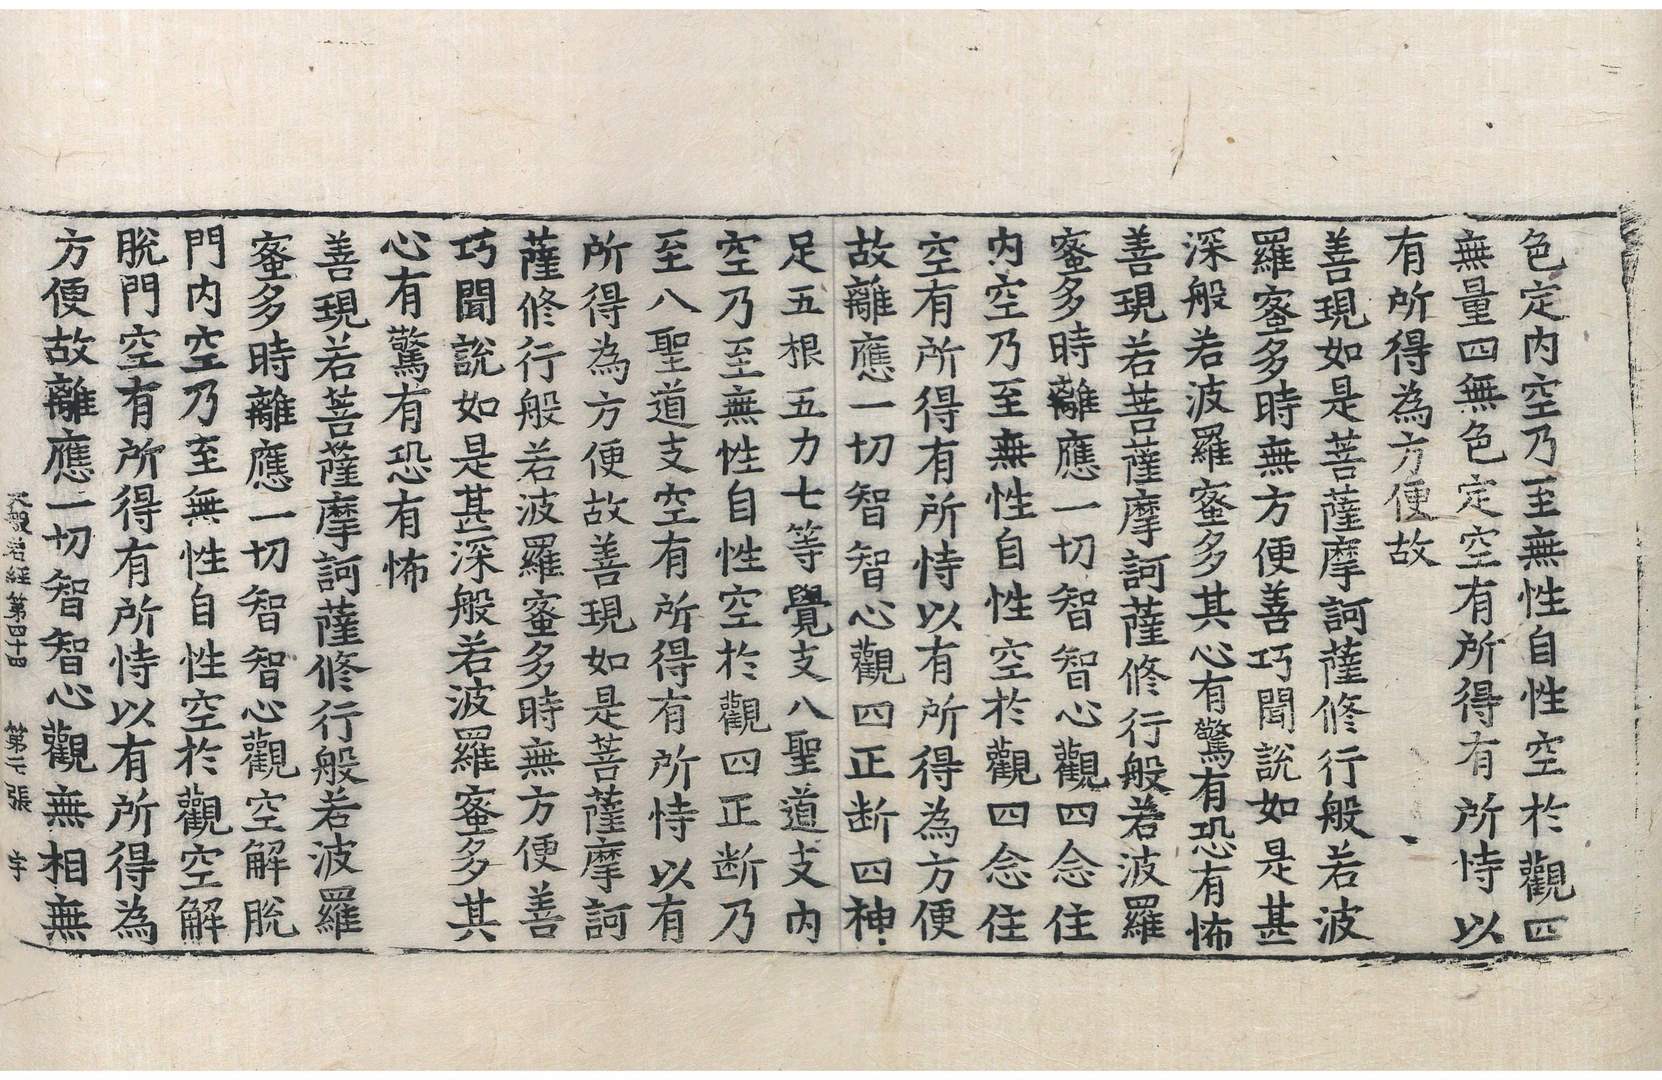 色定内空乃至無性自性空於觀四
無量四無色定空有所得有所恃以
有所得為方便故
善現如是菩薩摩訶薩修行般若波
羅蜜多時無方便善巧聞說如是甚
深般若波羅蜜多其心有驚有恐有怖
善現若菩薩摩訶薩修行般若波羅
蜜多時離應一切智智心觀四念住
内空乃至無性自性空於觀四念住
空有所得有所恃以有所得為方便
故離應一切智智心觀四正断四神
足五根五力七等覺支八聖道支内
空乃至無性自性空於觀四正断乃
至八聖道支空有所得有所恃以有
所得為方便故善現如是菩薩摩訶
薩修行般若波羅蜜多時無方便善
巧聞說如是甚深般若波羅蜜多其
心有驚有恐有怖
善現若菩薩摩訶薩修行般若波羅
蜜多時離應一切智智心觀空解脫
門内空乃至無性自性空於觀空解
脫門空有所得有所恃以有所得為
方便故離應一切智智心觀無相無
般若經第四十四 第二張 字